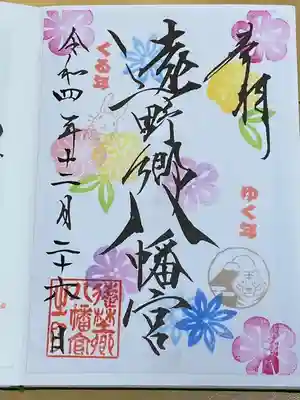 奉拝
ゆく年
遠野郷八幡宮
くる年
令和四年十二月二十六日
遠野郷
八幡宮